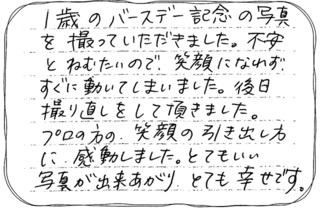 1歳のバースデー記念の写真
を撮っていただきました。不安
とねむたいので、笑顔になれず
すぐに動いてしまいました。後日
撮り直しをして頂きました。
プロの方の、笑顔の引き出し方
に、感動しました。とてもいい
写真が出来あがり、とても幸せです。